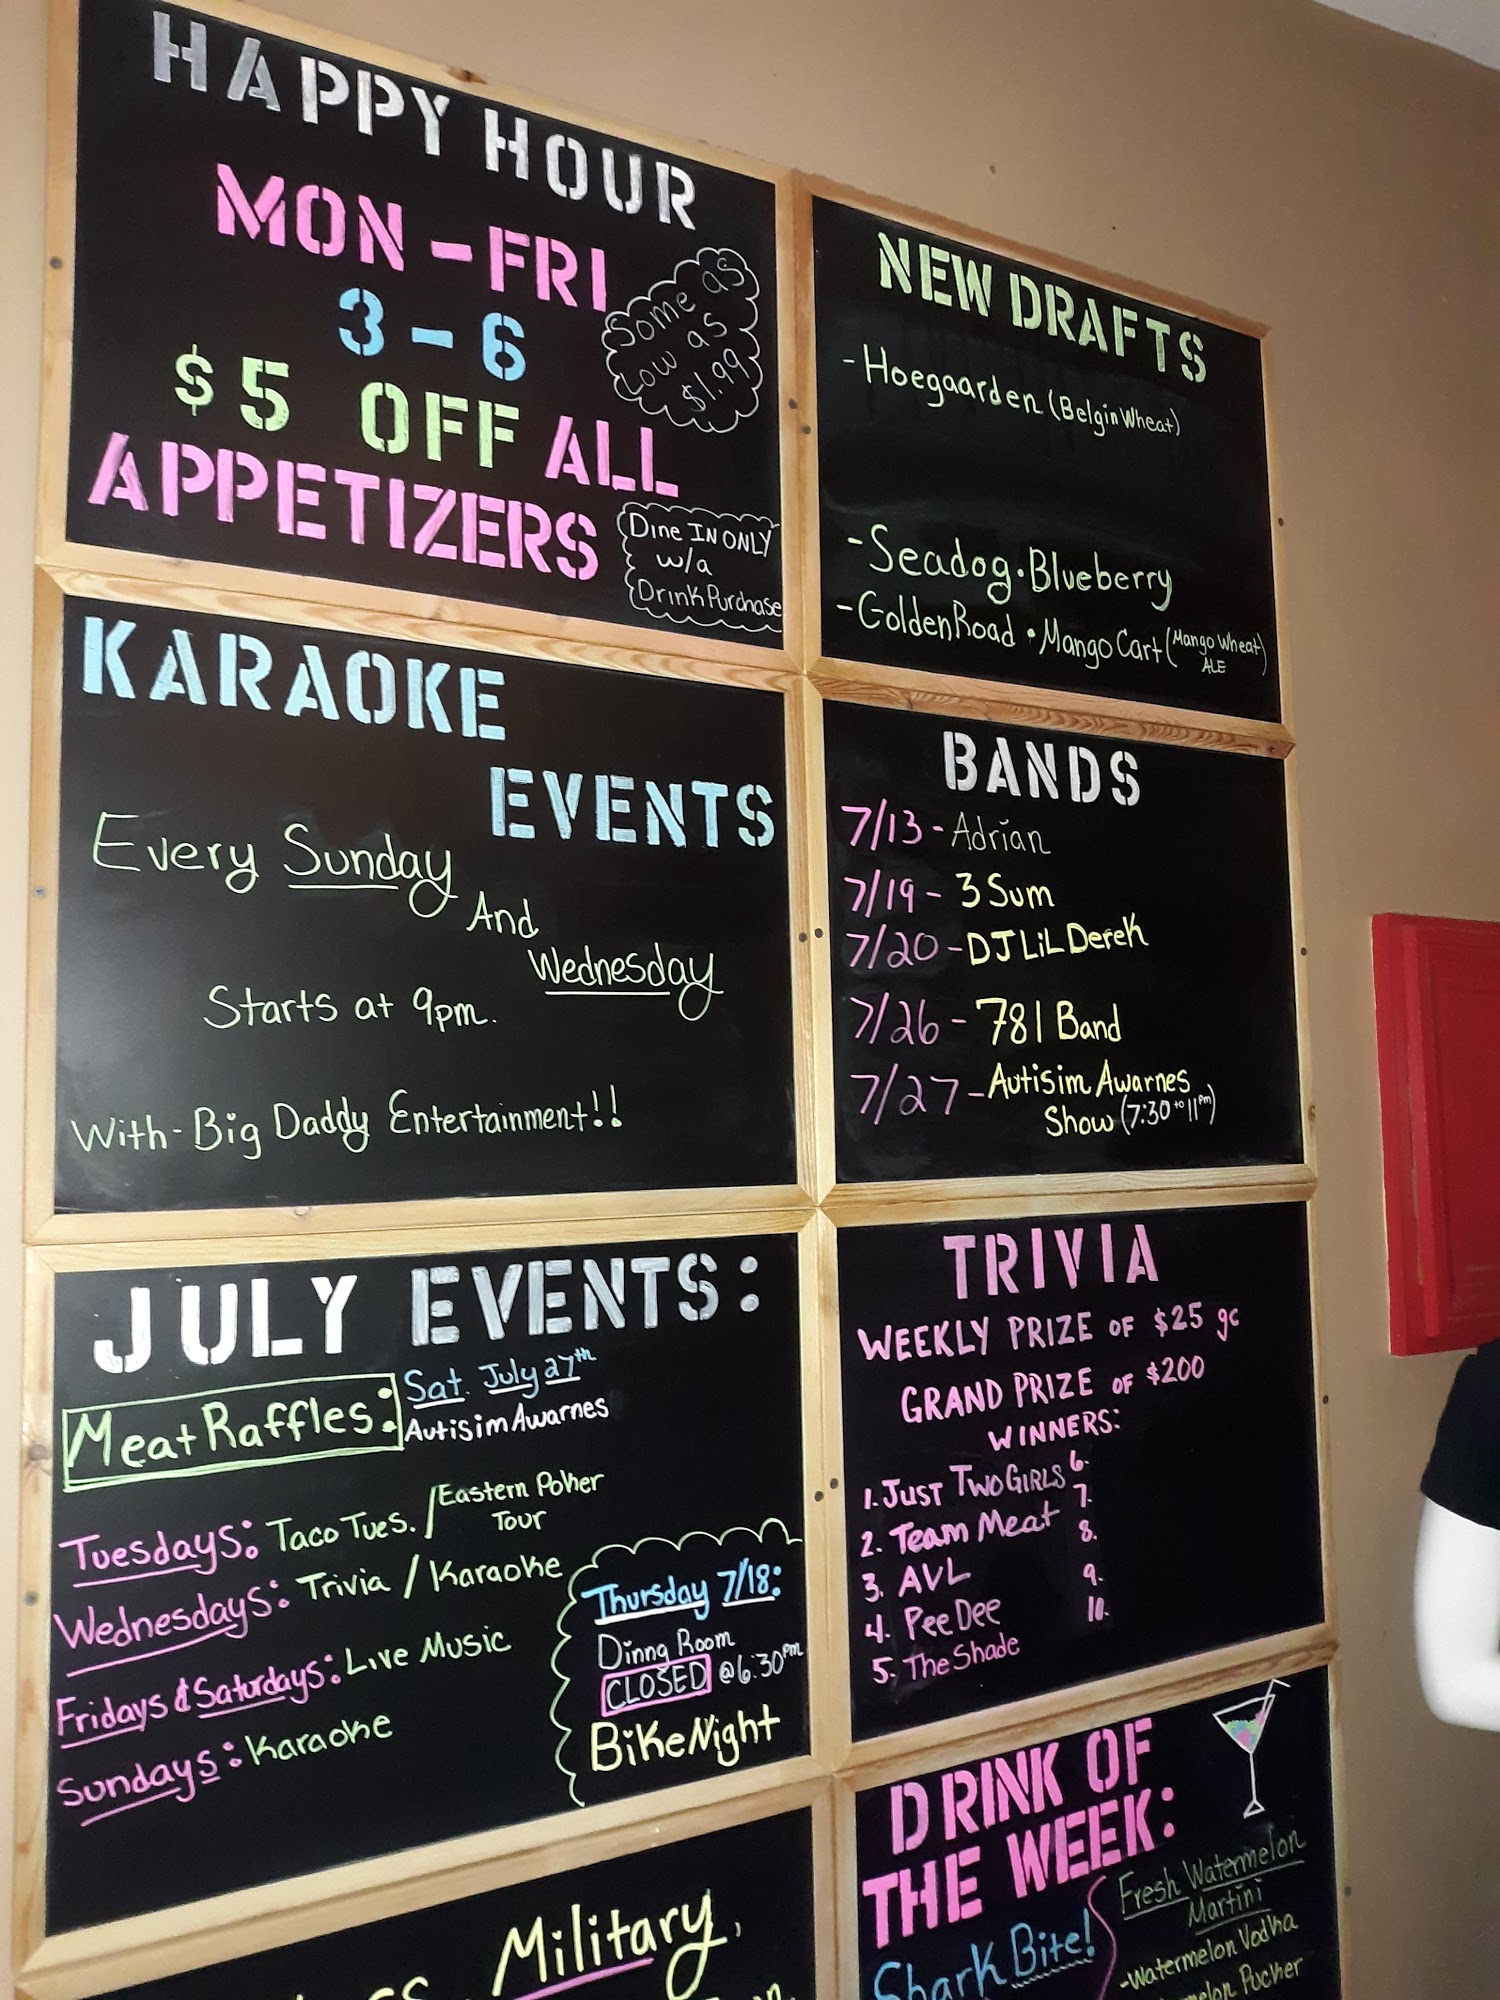 HAPPY HOUR
MON-FRI
3-6
Some as
Low as
$1.99
$5 OFF ALL
APPETIZERS
Dine IN ONLY
w/a
Drink Purchase
NEW DRAFTS
-Hoegaarden (Belgin Wheat)
-Seadog • Blueberry
-Golden Road • Mango Cart (Mango Wheat)
ALE
KARAOKE
EVENTS
Every Sunday
And
Wednesday
Starts at 9pm.
With-Big Daddy Entertainment!!
BANDS
7/13-Adrian
7/19-3 Sum
7/20-DJ LiL Derek
7/26-781 Band
7/27-Autisim Awarnes
Show (7:30 to 11pm)
JULY EVENTS:
Meat Raffles: Sat. July 27th
Autisim Awarnes
Tuesdays: Taco Tues. / Eastern Poker
Tour
Wednesdays: Trivia / Karaoke
Fridays & Saturdays: Live Music
Sundays: Karaoke
Thursday 7/18:
Dinng Room
CLOSED @6:30pm
Bike Night
TRIVIA
WEEKLY PRIZE OF $25 gc
GRAND PRIZE OF $200
WINNERS:
1. JUST TWO GIRLS
2. Team Meat
3. AVL
4. Pee Dee
5. The Shade
6.
7.
8.
9.
10.
Military,
DRINK OF
THE WEEK:
Shark Bite!
Fresh Watermelon
Martini
-Watermelon Vodka
Pucker